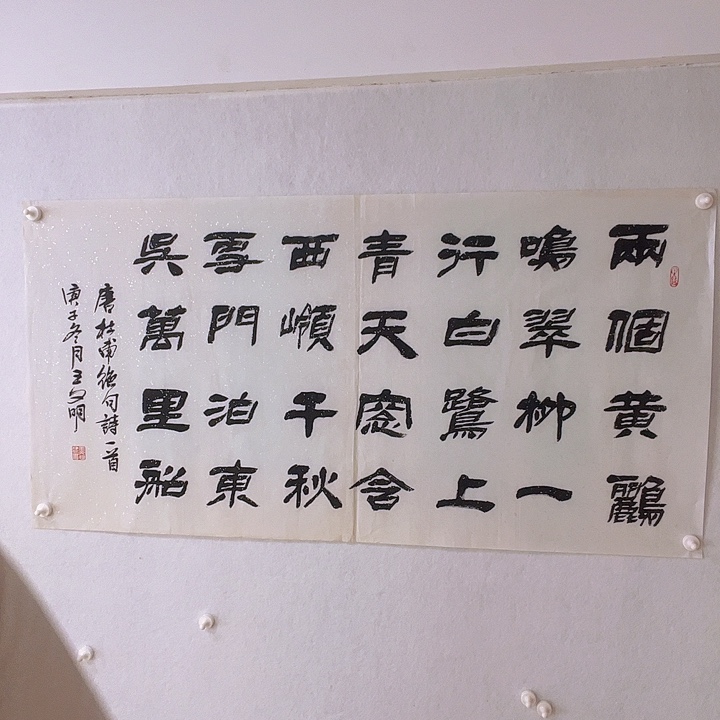 兩個黄鸝
鳴翠柳一
行白鷺上
青天窗含
西嶺千秋
雪門泊東
吳萬里船
唐杜甫絶句詩一首
庚子冬月王明